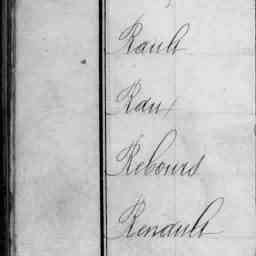 Rault
Raux
Rebours
Renault